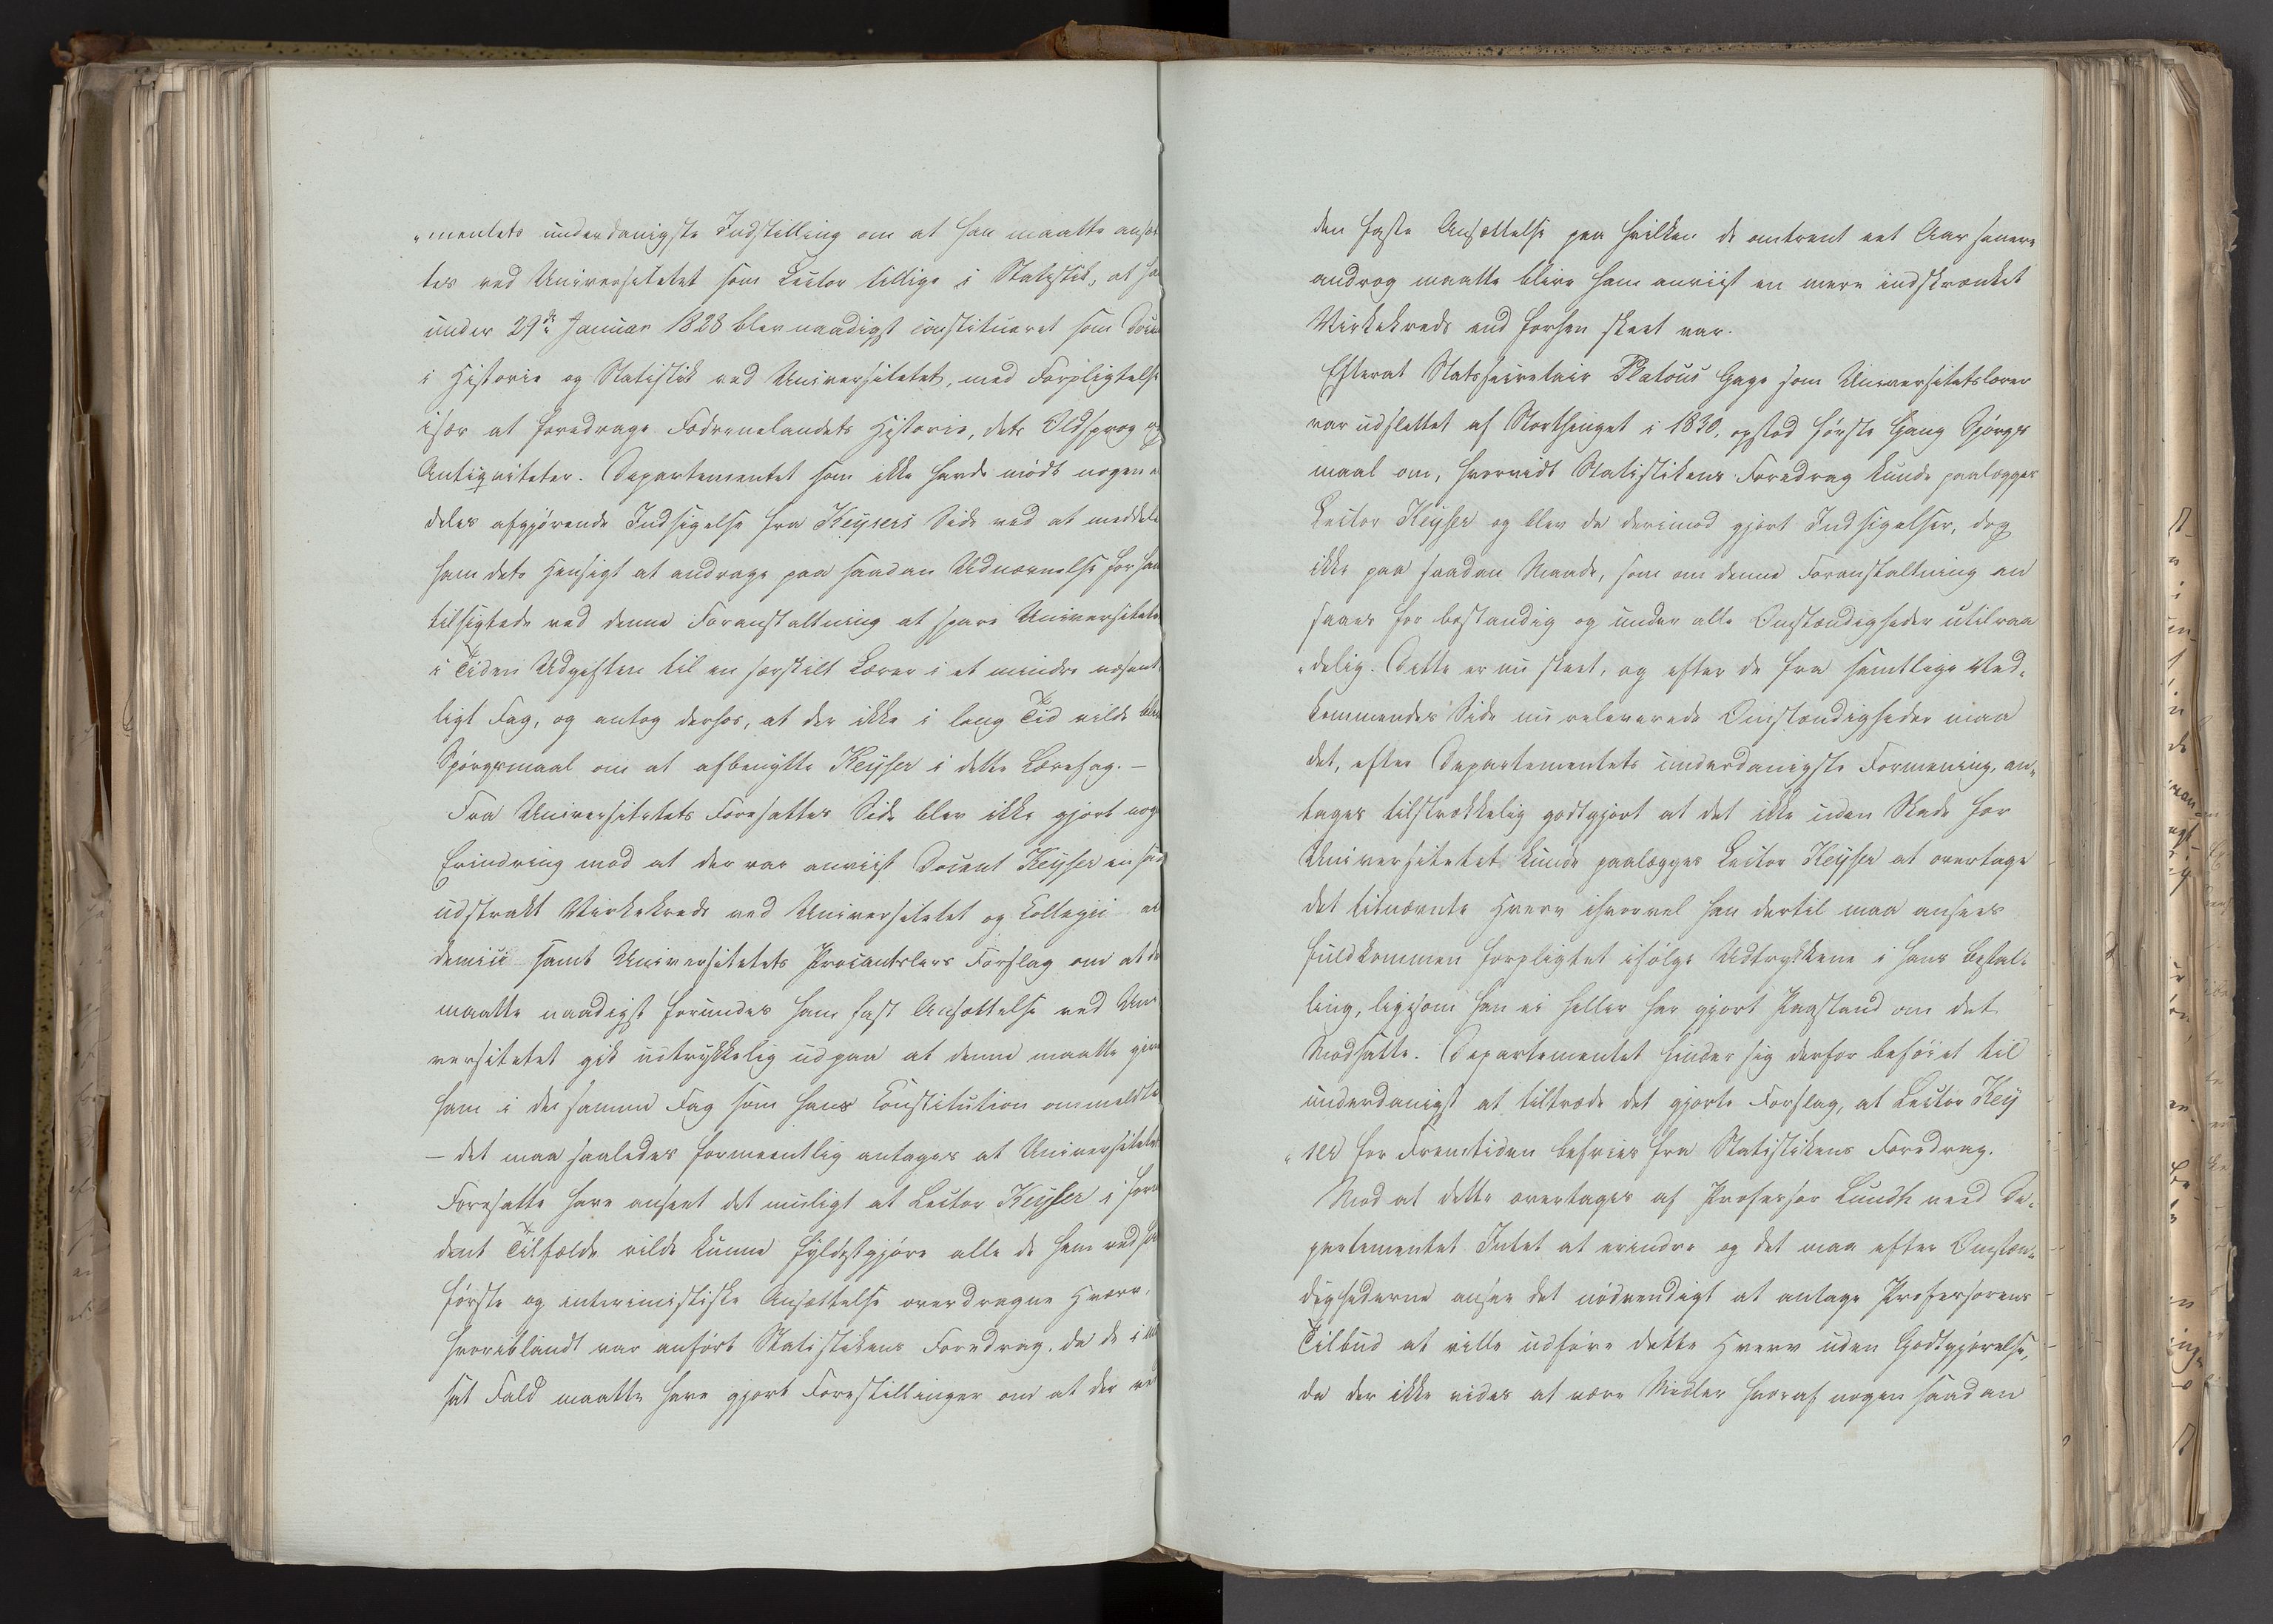 „mentets underdanigste Indstilling om at han maatte ansæt
tes ved Universitetet som Lector tillige i Statistik, at han
under 29de Januar 1828 blev naadigst constitueret som Docen
i Historie og Statistik ved Universitetet, med Forpligtelse
især at foredrage Fædrenelandets Historie, dets Oldsprog og
Antiqviteter. Departementet som ikke havde mödt nogen
deles afgjörende Indsigelse fra Keysers Side ved at meddele
ham dets Hensigt at andrage paa saadan Udnævnelse for ham
tilsigtede ved denne Foranstaltning at spare Universitetet
i Tiden Udgiften til en særskilt Lærer i et mindre væsent
ligt Fag, og antog derhos, at der ikke i lang Tid vilde blive
Spörgsmaal om at afbenytte Keyser i dette Lærefag. –
Fra Universitetets Foresattes Side blev ikke gjort nogen
Erindring mod at der var anviist Docent Keyser en saa
udstrakt Virkekreds ved Universitetet og Collegii aca
demici samt Universitetets Procantslers Forslag om at der
maatte naadigst forundes ham fast Ansættelse ved Uni
versitetet gik udtrykkelig ud paa at denne maatte gives
ham i de samme Fag som hans Constitution ommeldte
– det maa saaledes formeentlig antages at Universitetets
Foresatte have anseet det muligt at Lector Keyser i fore
dent Tilfælde vilde kunne fyldestgjöre alle de ham ved hans
förste og interimistiske Ansættelse overdragne Hverv,
hvoriblandt var anfört Statistikens Foredrag, da de i mod
sat Fald maatte have gjort Forestillinger om at der ved
den faste Ansættelse paa hvilken de omtrent eet Aar senere
androg maatte blive ham anviist en mere indskrænket
Virkekreds end forhen skeet var.
Efterat Statssecretair Platous Gage som Universitetslærer
var udslettet af Storthinget i 1830, opstod förste Gang Spörgs
maal om, hvorvidt Statistikens Foredrag kunde paalægges
Lector Keyser og blev da derimod gjort Indsigelser, dog
ikke paa saadan Maade, som om denne Foranstaltning an
saaes for bestandig og under alle Omstændigheder utilraa
„delig. Dette er nu skeet, og efter de fra samtlige Ved„
kommendes Side nu releverede Omstændigheder maa
det, efter Departementets underdanigste Formening, an„
tages tilstrækkelig godtgjort at det ikke uden Skade for
Universitetet kunde paalægges Lector Keyser at overtage
det bemeldte Hverv ihvorvel han dertil maa ansees
fuldkommen forpligtet ifölge Udtrykkene i hans Bestal„
ling, ligesom han ei heller har gjort Paastand om det
Modsatte. Departementet finder sig derfor beföiet til
underdanigst at tiltræde det gjorte Forslag, at Lector Key
„ser for Fremtiden befries fra Statistikens Foredrag.
Mod at dette overtages af Professor Lundh veed De„
partementet Intet at erindre og det maa efter Omstæn„
dighederne ansee det nödvendigt at antage Professorens
Tilbud at ville udföre dette Hverv uden Godtgjörelse,
da der ikke vides at være Midler hvoraf nogen saadan